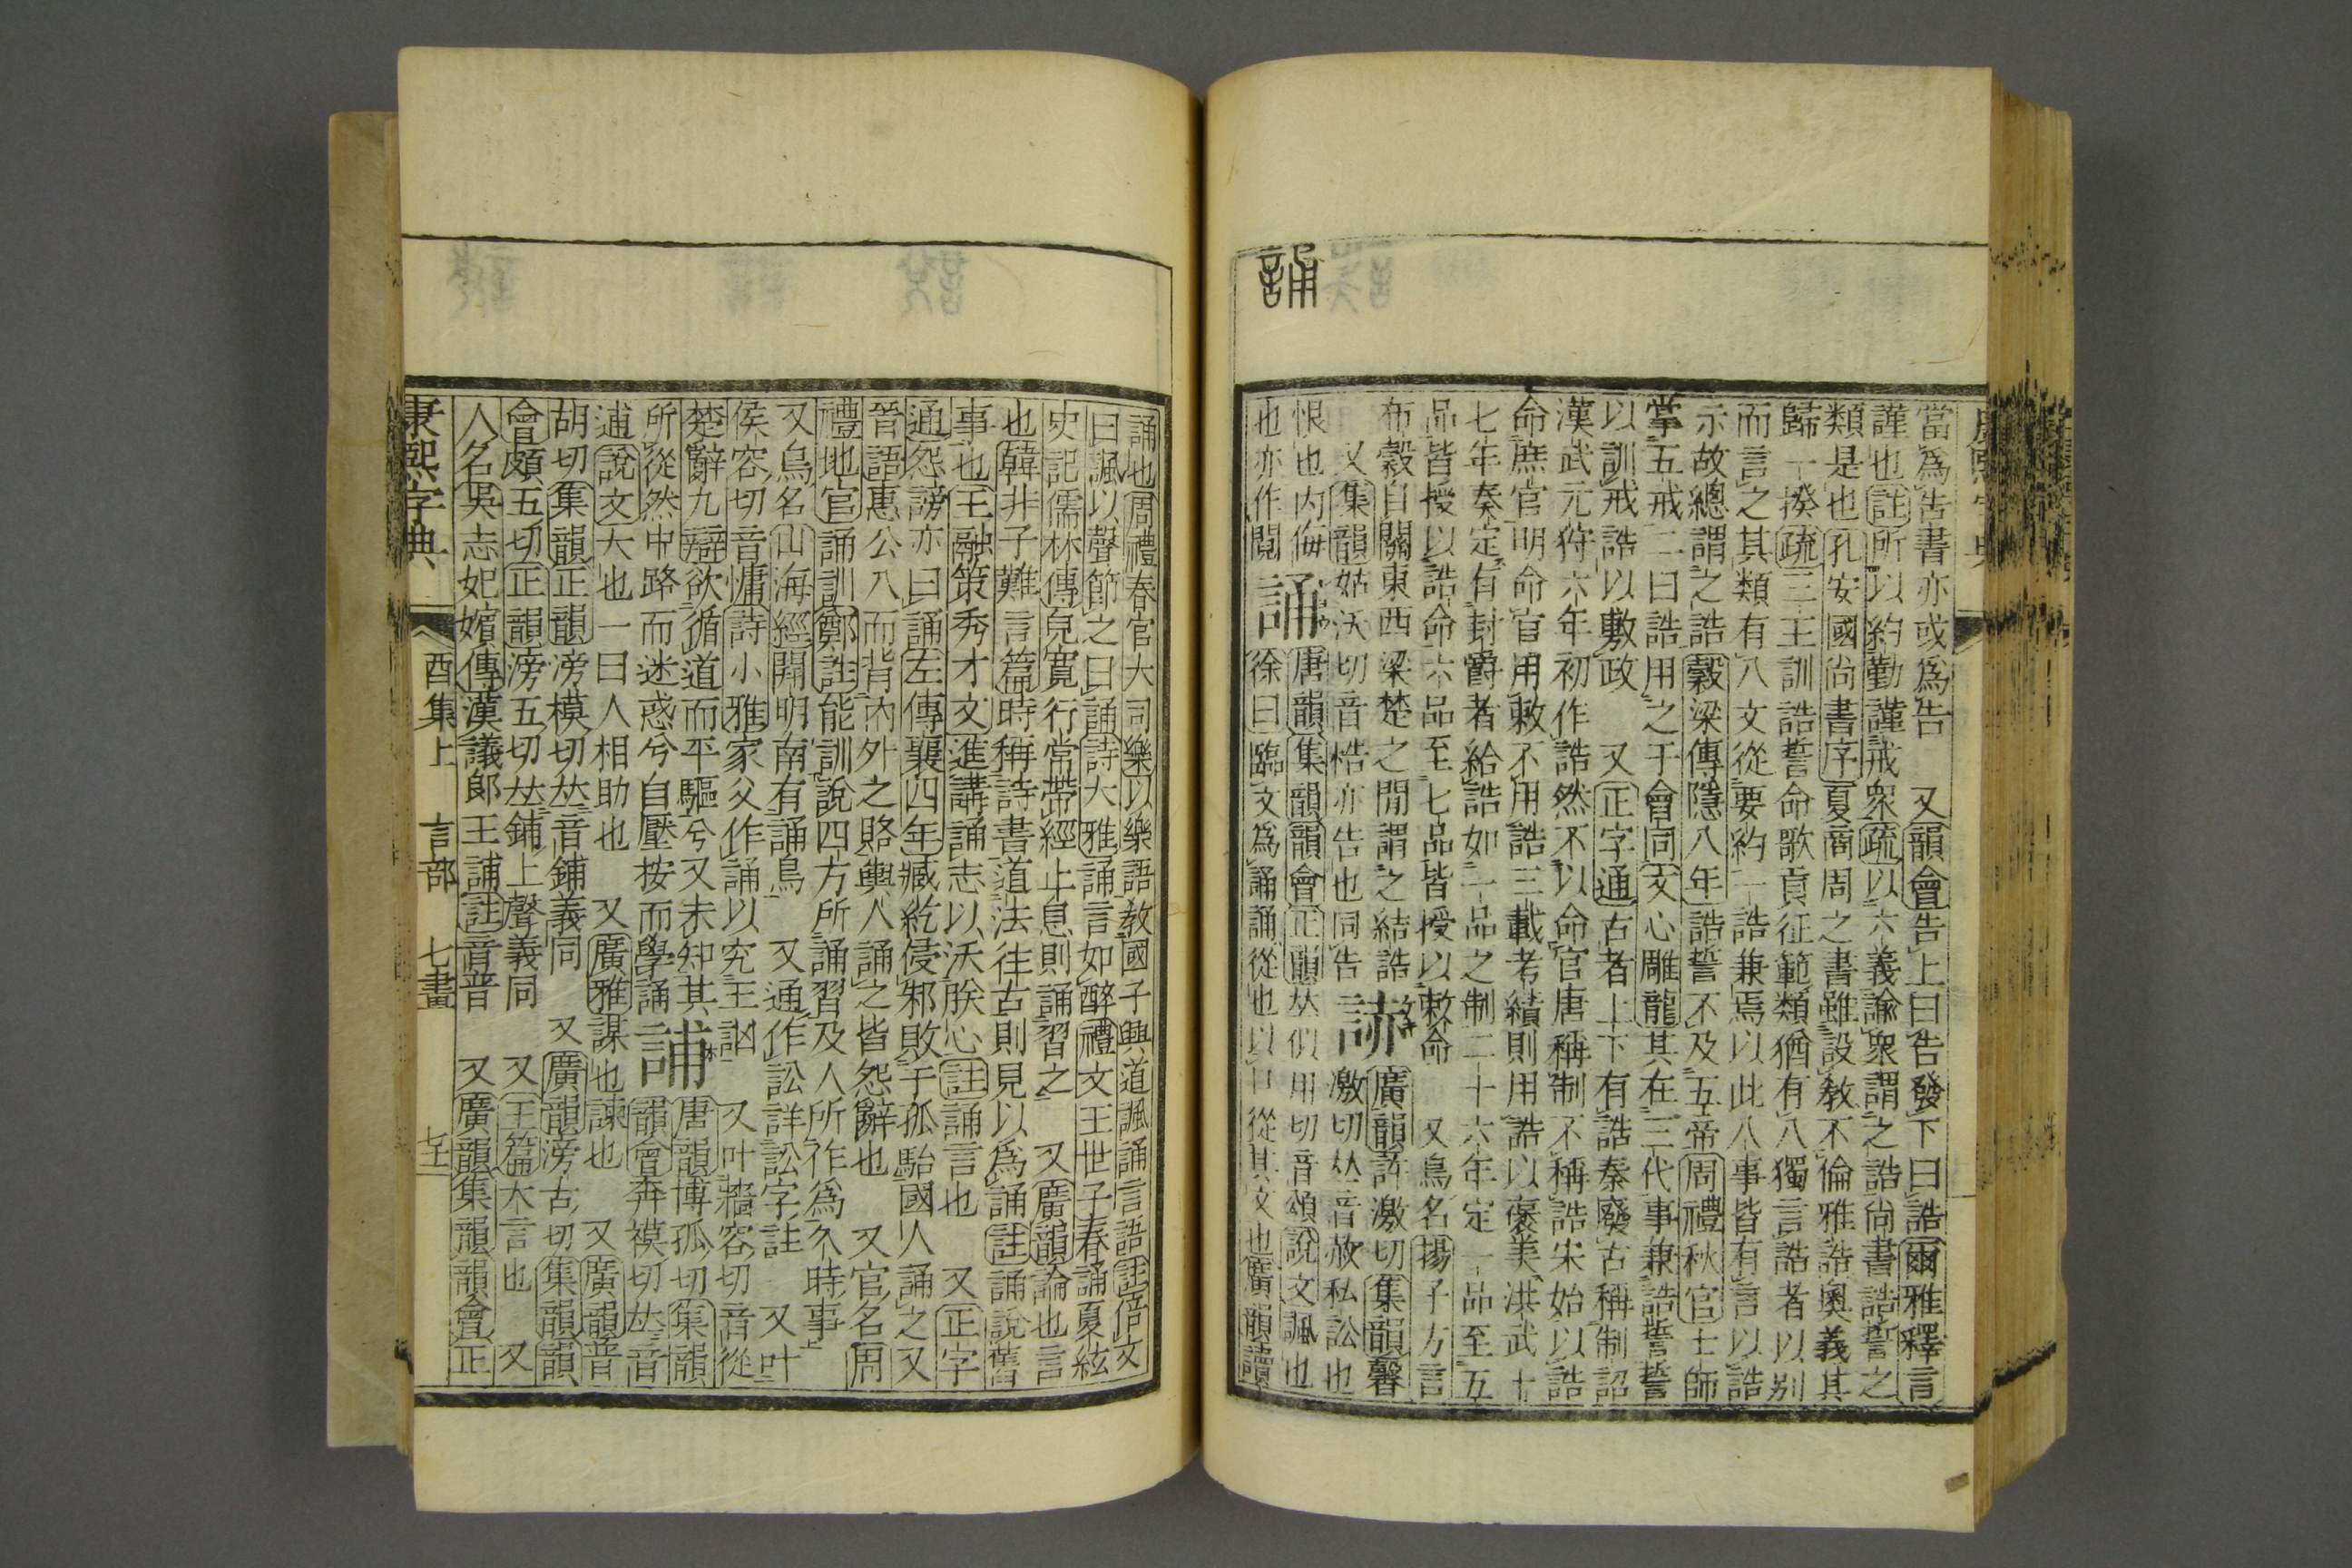 誦
當爲吿書亦或爲告　又韻會告上曰告發下曰誥爾雅釋言
謹也註所以約勤謹戒衆疏以六義諭衆謂之誥尚書誥誓之
類是也孔安國尚書序夏商周之書雖設敎不倫雅誥奥義其
歸一揆疏三王訓誥誓命歌貢征範類猶有八獨言誥者以別
而言之其類有八文從要約一誥兼焉以此八事皆有言以誥
示故總謂之誥穀梁傳隱八年誥誓不及五帝周禮秋官士師
掌五戒二曰誥用之于會同文心雕龍其在三代事兼誥誓誓
以訓戒誥以敷政　又正字通古者上下有誥秦廢古稱制詔
漢武元狩六年初作誥然不以命官唐稱制不稱誥宋始以誥
命庶官明命官用敕不用誥三載考績則用誥以褒美洪武十
七年奏定有封爵者給誥如一品之制二十六年定一品至五
品皆授以誥命六品至七品皆授以敕命　又鳥名揚子方言
布穀自關東西梁楚之閒謂之結誥誁廣韻許激切集韻馨
激切𠀤音赥私訟也
又集韻姑沃切音梏亦告也同告
恨也内侮
也亦作鬩誦唐韻集韻韻會正韻𠀤似用切音頌說文諷也
徐曰臨文爲誦誦從也以口從其文也廣韻讀
誦也周禮春官大司樂以樂語敎國子興道諷誦言語註倍文
曰諷以聲節之曰誦詩大雅誦言如醉禮文王世子春誦夏絃
史記儒林傳皃寬行常帶經止息則誦習之　又廣韻論也言
也韓非子難言篇時稱詩書道法往古則見以爲誦註誦說舊
事也王融策秀才文進講誦志以沃朕心註誦言也　又正字
通怨謗亦曰誦左傳襄四年臧紇侵邾敗于狐駘國人誦之又
晉語惠公入而背内外之賂輿人誦之皆怨辭也　又官名周
禮地官誦訓鄭註能訓說四方所誦習及人所作爲久時事
又鳥名山海經開明南有誦鳥　又通作訟詳訟字註　又叶
侯容切音慵詩小雅家父作誦以究王訩　又叶牆容切音從
楚辭九辯欲循道而平驅兮又未知其
所從然中路而迷惑兮自壓按而學誦誧唐韻博孤切集韻
韻會奔模切𠀤音
逋說文大也一曰人相助也　又廣雅謀也諫也　又廣韻普
胡切集韻正韻滂模切𠀤音鋪義同　又廣韻滂古切集韻韻
會頗五切正韻滂五切𠀤鋪上聲義同　又玉篇大言也　又
人名吳志妃嬪傳漢議郞王誧註音普　又廣韻集韻韻會正
康熙字典　酉集上　言部　七畫